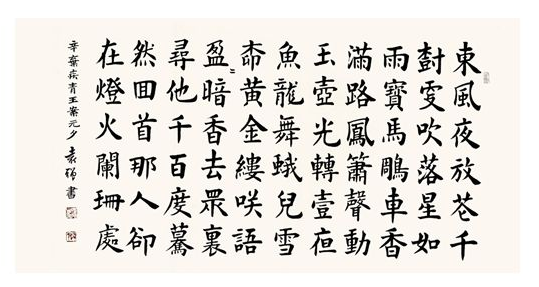 東風夜放花千
尌更吹落星如
雨寶馬鵰車香
滿路鳳簫聲動
玉壺光轉壹夜
魚龍舞蛾兒雪
柳黃金縷咲語
盈〻暗香去眾裏
尋他千百度驀
然囬首那人卻
在燈火闌珊處
辛棄疾青玉案元夕 袁強書